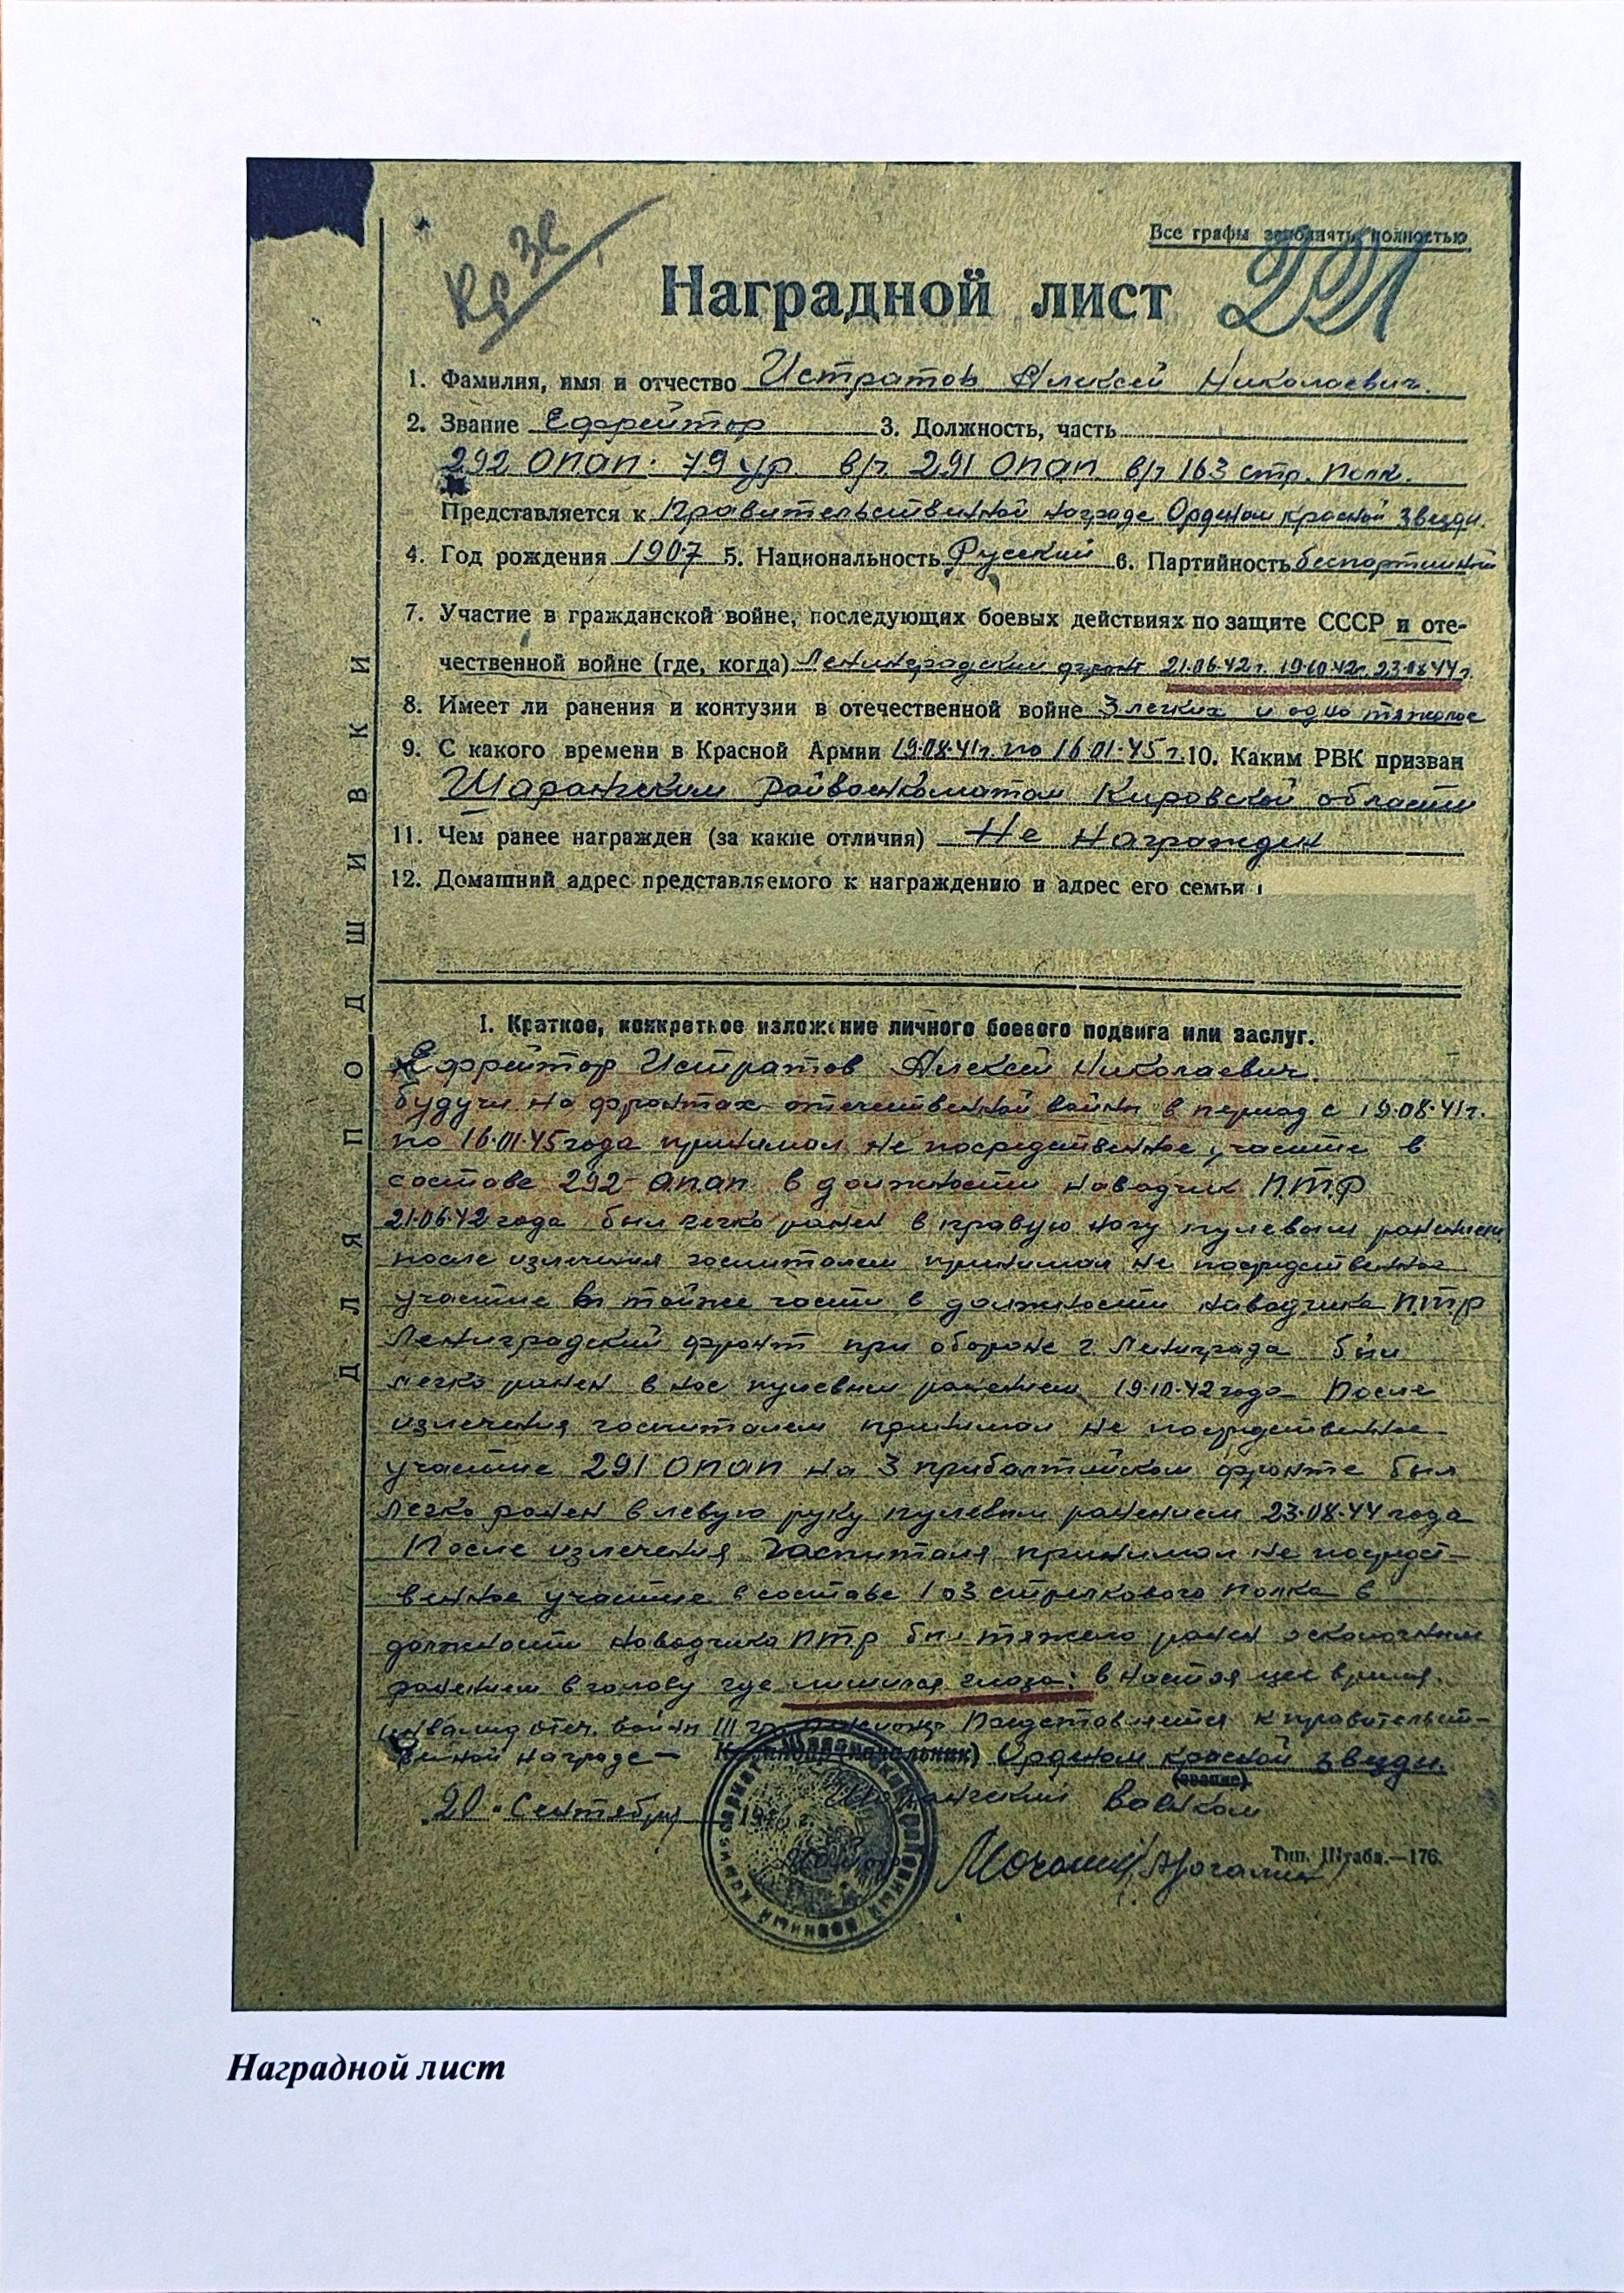 Кр Зв
Все графы заполнять полностью
Наградной лист 221
1. Фамилия, имя и отчество Истратов Алексей Николаевич.
2. Звание Ефрейтор 3. Должность, часть
292 опап. 79 ур. в/ч 291 опап в/ч 163 стр. полк.
Представляется к Правительственной награде Орденом красной звезды.
4. Год рождения 1907 5. Национальность Русский 6. Партийность беспартийный
7. Участие в гражданской войне, последующих боевых действиях по защите СССР и оте-
чественной войне (где, когда) Ленинградский фронт 21.06.42г. 19.10.42г. 23.08.44г.
8. Имеет ли ранения и контузии в отечественной войне 3 легких и одно тяжолое
9. С какого времени в Красной Армии 19.08.41г. по 16.01.45г. 10. Каким РВК призван
Шарангским Райвоенкоматом Кировской области
11. Чем ранее награжден (за какие отличия) Не награжден
12. Домашний адрес представляемого к награждению и адрес его семьи
ДЛЯ ПОДШИВКИ
I. Краткое, конкретное изложение личного боевого подвига или заслуг.
Ефрейтор Истратов Алексей Николаевич.
будучи на фронтах отечественной войны в период с 19.08.41г.
по 16.01.45 года принимал не посредственное участие в
составе 292 опап в должности наводчик ПТР
21.06.42 года был легко ранен в правую ногу пулевым ранением
после излечения госпиталем принимал не посредственное
участие в тойже части в должности наводчика ПТР
Ленинградский фронт при обороне г. Ленинграда был
легко ранен в нос пулевым ранением 19.10.42 года После
излечения госпиталем принимал не посредственное
участие 291 опап на 3 прибалтийском фронте был
легко ранен в левую руку пулевым ранением 23.08.44 года
После излечения госпиталя принимал не посредст-
венное участие в составе 163 стрелкового полка в
должности наводчика ПТР был тяжело ранен осколочным
ранением в голову где лишился глаза: в настоящее время
инвалид отеч. войны III Представляется к правительст-
венной награде — Командир (начальник) Орденом красной звезды.
(звание)
20 " Сентября 1946 г. Шарангский Военком
Мочалин
Тип. Штаба.—176.
Наградной лист